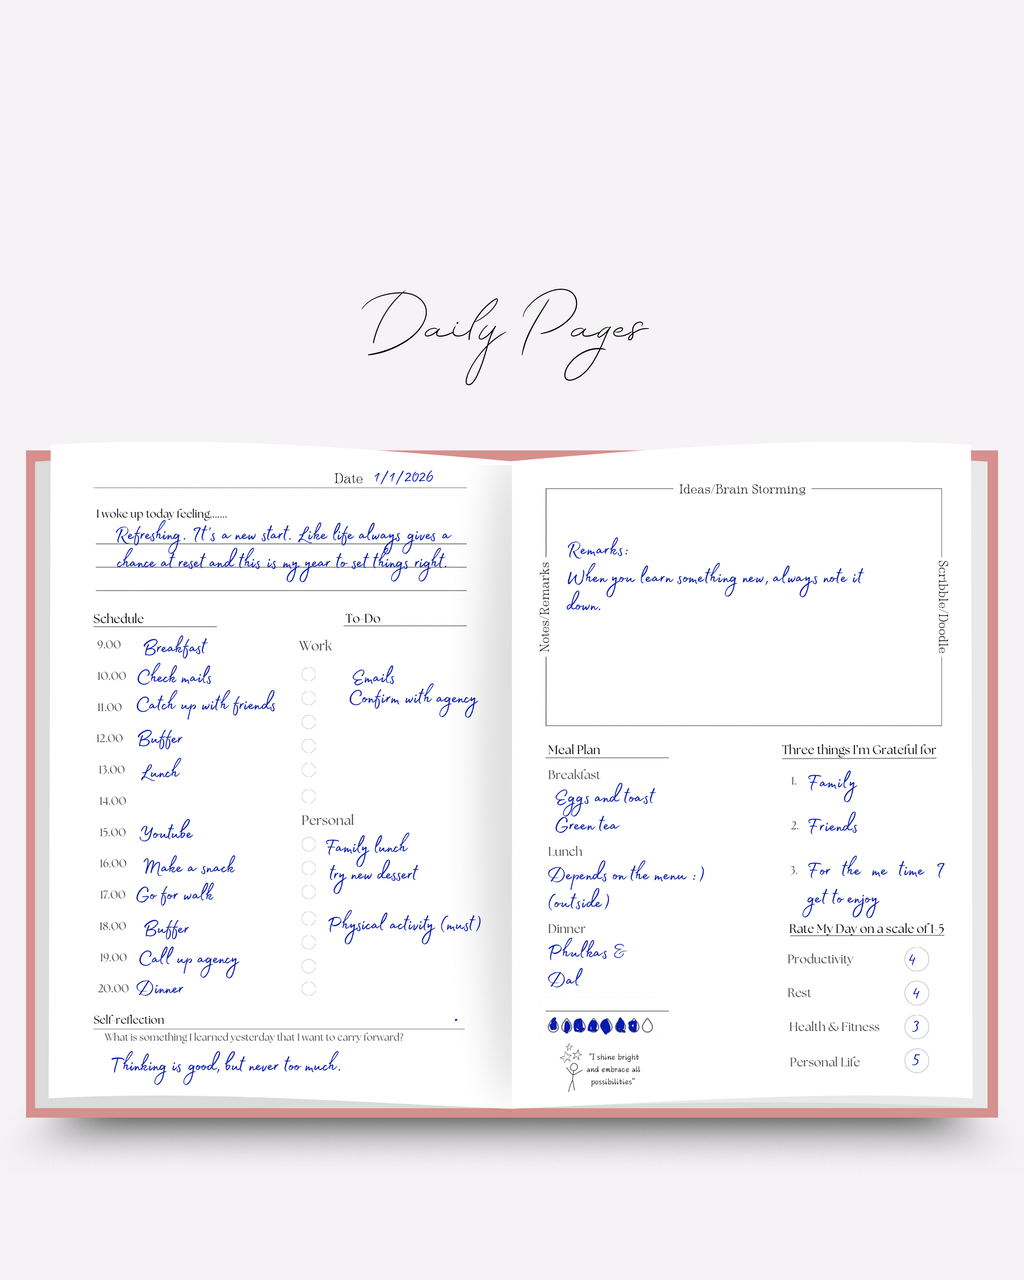 Daily Pages
Date 1/1/2026
I woke up today feeling.......
Refreshing. It's a new start. Like life always gives a
chance at reset and this is my year to set things right.
Schedule
9.00 Breakfast
10.00 Check mails
11.00 Catch up with friends
12.00 Buffer
13.00 Lunch
14.00
15.00 Youtube
16.00 Make a snack
17.00 Go for walk
18.00 Buffer
19.00 Call up agency
20.00 Dinner
To-Do
Work
Emails
Confirm with agency
Personal
Family lunch
try new dessert
Physical activity (must)
Self-reflection
What is something I learned yesterday that I want to carry forward?
Thinking is good, but never too much.
Ideas/Brain Storming
Notes/Remarks
Scribble/Doodle
Remarks:
When you learn something new, always note it
down.
Meal Plan
Breakfast
Eggs and toast
Green tea
Lunch
Depends on the menu :)
(outside)
Dinner
Phulkas &
Dal
"I shine bright
and embrace all
possibilities"
Three things I'm Grateful for
1. Family
2. Friends
3. For the me time I
get to enjoy
Rate My Day on a scale of 1-5
Productivity 4
Rest 4
Health & Fitness 3
Personal Life 5